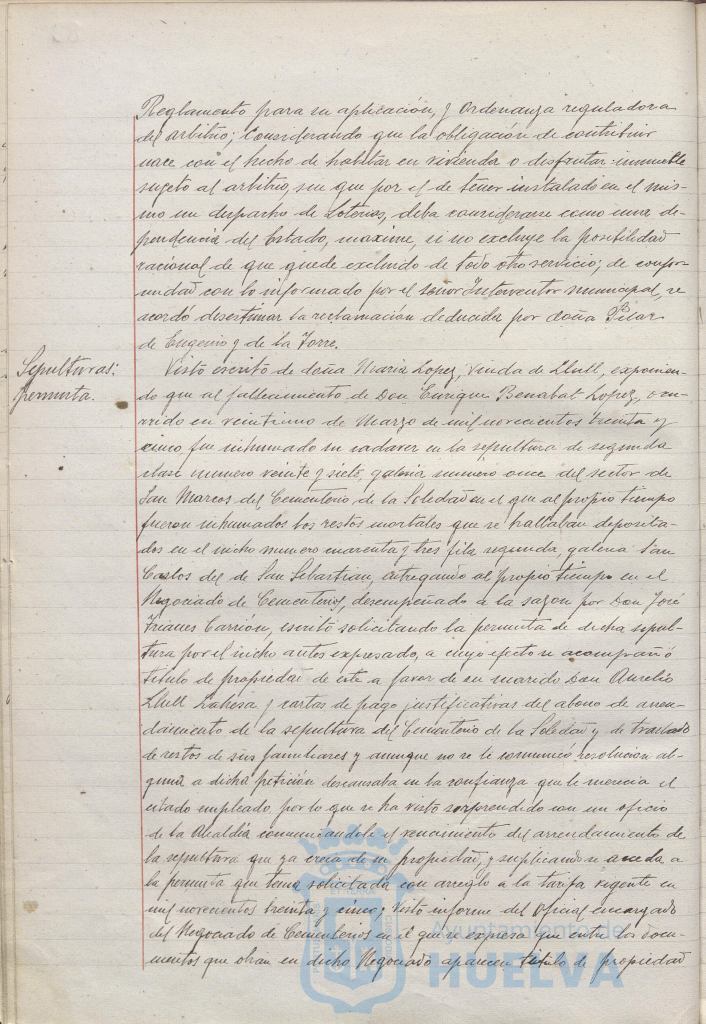 Reglamento para su aplicación, y Ordenanza reguladora
del arbitrio; Considerando que la obligación de contribuir
nace con el hecho de habitar en vivienda o disfrutar inmueble
sugeto al arbitrio, sin que por el de tener instalado en el mis-
mo un despacho de Loterias, deba considerarse como una de-
pendencia del Estado, maxime, si no excluye la posibilidad
racional de que quede excluido de todo otro servicio; de confor-
midad con lo informado por el señor Interventor municipal, se
acordó desestimar la reclamación deducida por doña Pilar
de Eugenio y de la Torre.
Sepulturas:
permuta.
Visto escrito de doña Maria Lopez, Viuda de Llull, exponien-
do que al fallecimiento de Don Enrique Benabat Lopez, ocu-
rrido en veintiuno de Marzo de mil novecientos treinta y
cinco fue inhumado su cadaver en la sepultura de segunda
clase numero veinte y siete, galeria numero once del sector de
San Marcos del Cementerio de la Soledad en el que al propio tiempo
fueron inhumados los restos mortales que se hallaban deposita-
dos en el nicho numero cuarenta y tres fila segunda, galeria San
Carlos del de San Sebastian, entregando al propio tiempo en el
Negociado de Cementerios, desempeñado a la sazon por Don José
Trianes Carrión, escrito solicitando la permuta de dicha sepul-
tura por el nicho antes expresado, a cuyo efecto se acompañó
titulo de propiedad de este a favor de su marido Don Aurelio
Llull y cartas de pago justificativas del abono de arren-
damiento de la sepultura del Cementerio de la Soledad y de traslado
de restos de sus familiares y aunque no se le comunicó resolucion al-
guna a dicha petición descansaba en la confianza que le merecia el
citado empleado, por lo que se ha visto sorprendido con un oficio
de la Alcaldía comunicandole el vencimiento del arrendamiento de
la sepultura que ya creia de su propiedad, y suplicando se acceda a
la permuta que tenia solicitada con arreglo a la tarifa vigente en
mil novecientos treinta y cinco; Visto informe del Oficial encargado
del Negociado de Cementerios en el que se expresa que entre los docu-
mentos que obran en dicho Negociado aparecen titulo de propiedad
Ayuntamiento de
HUELVA